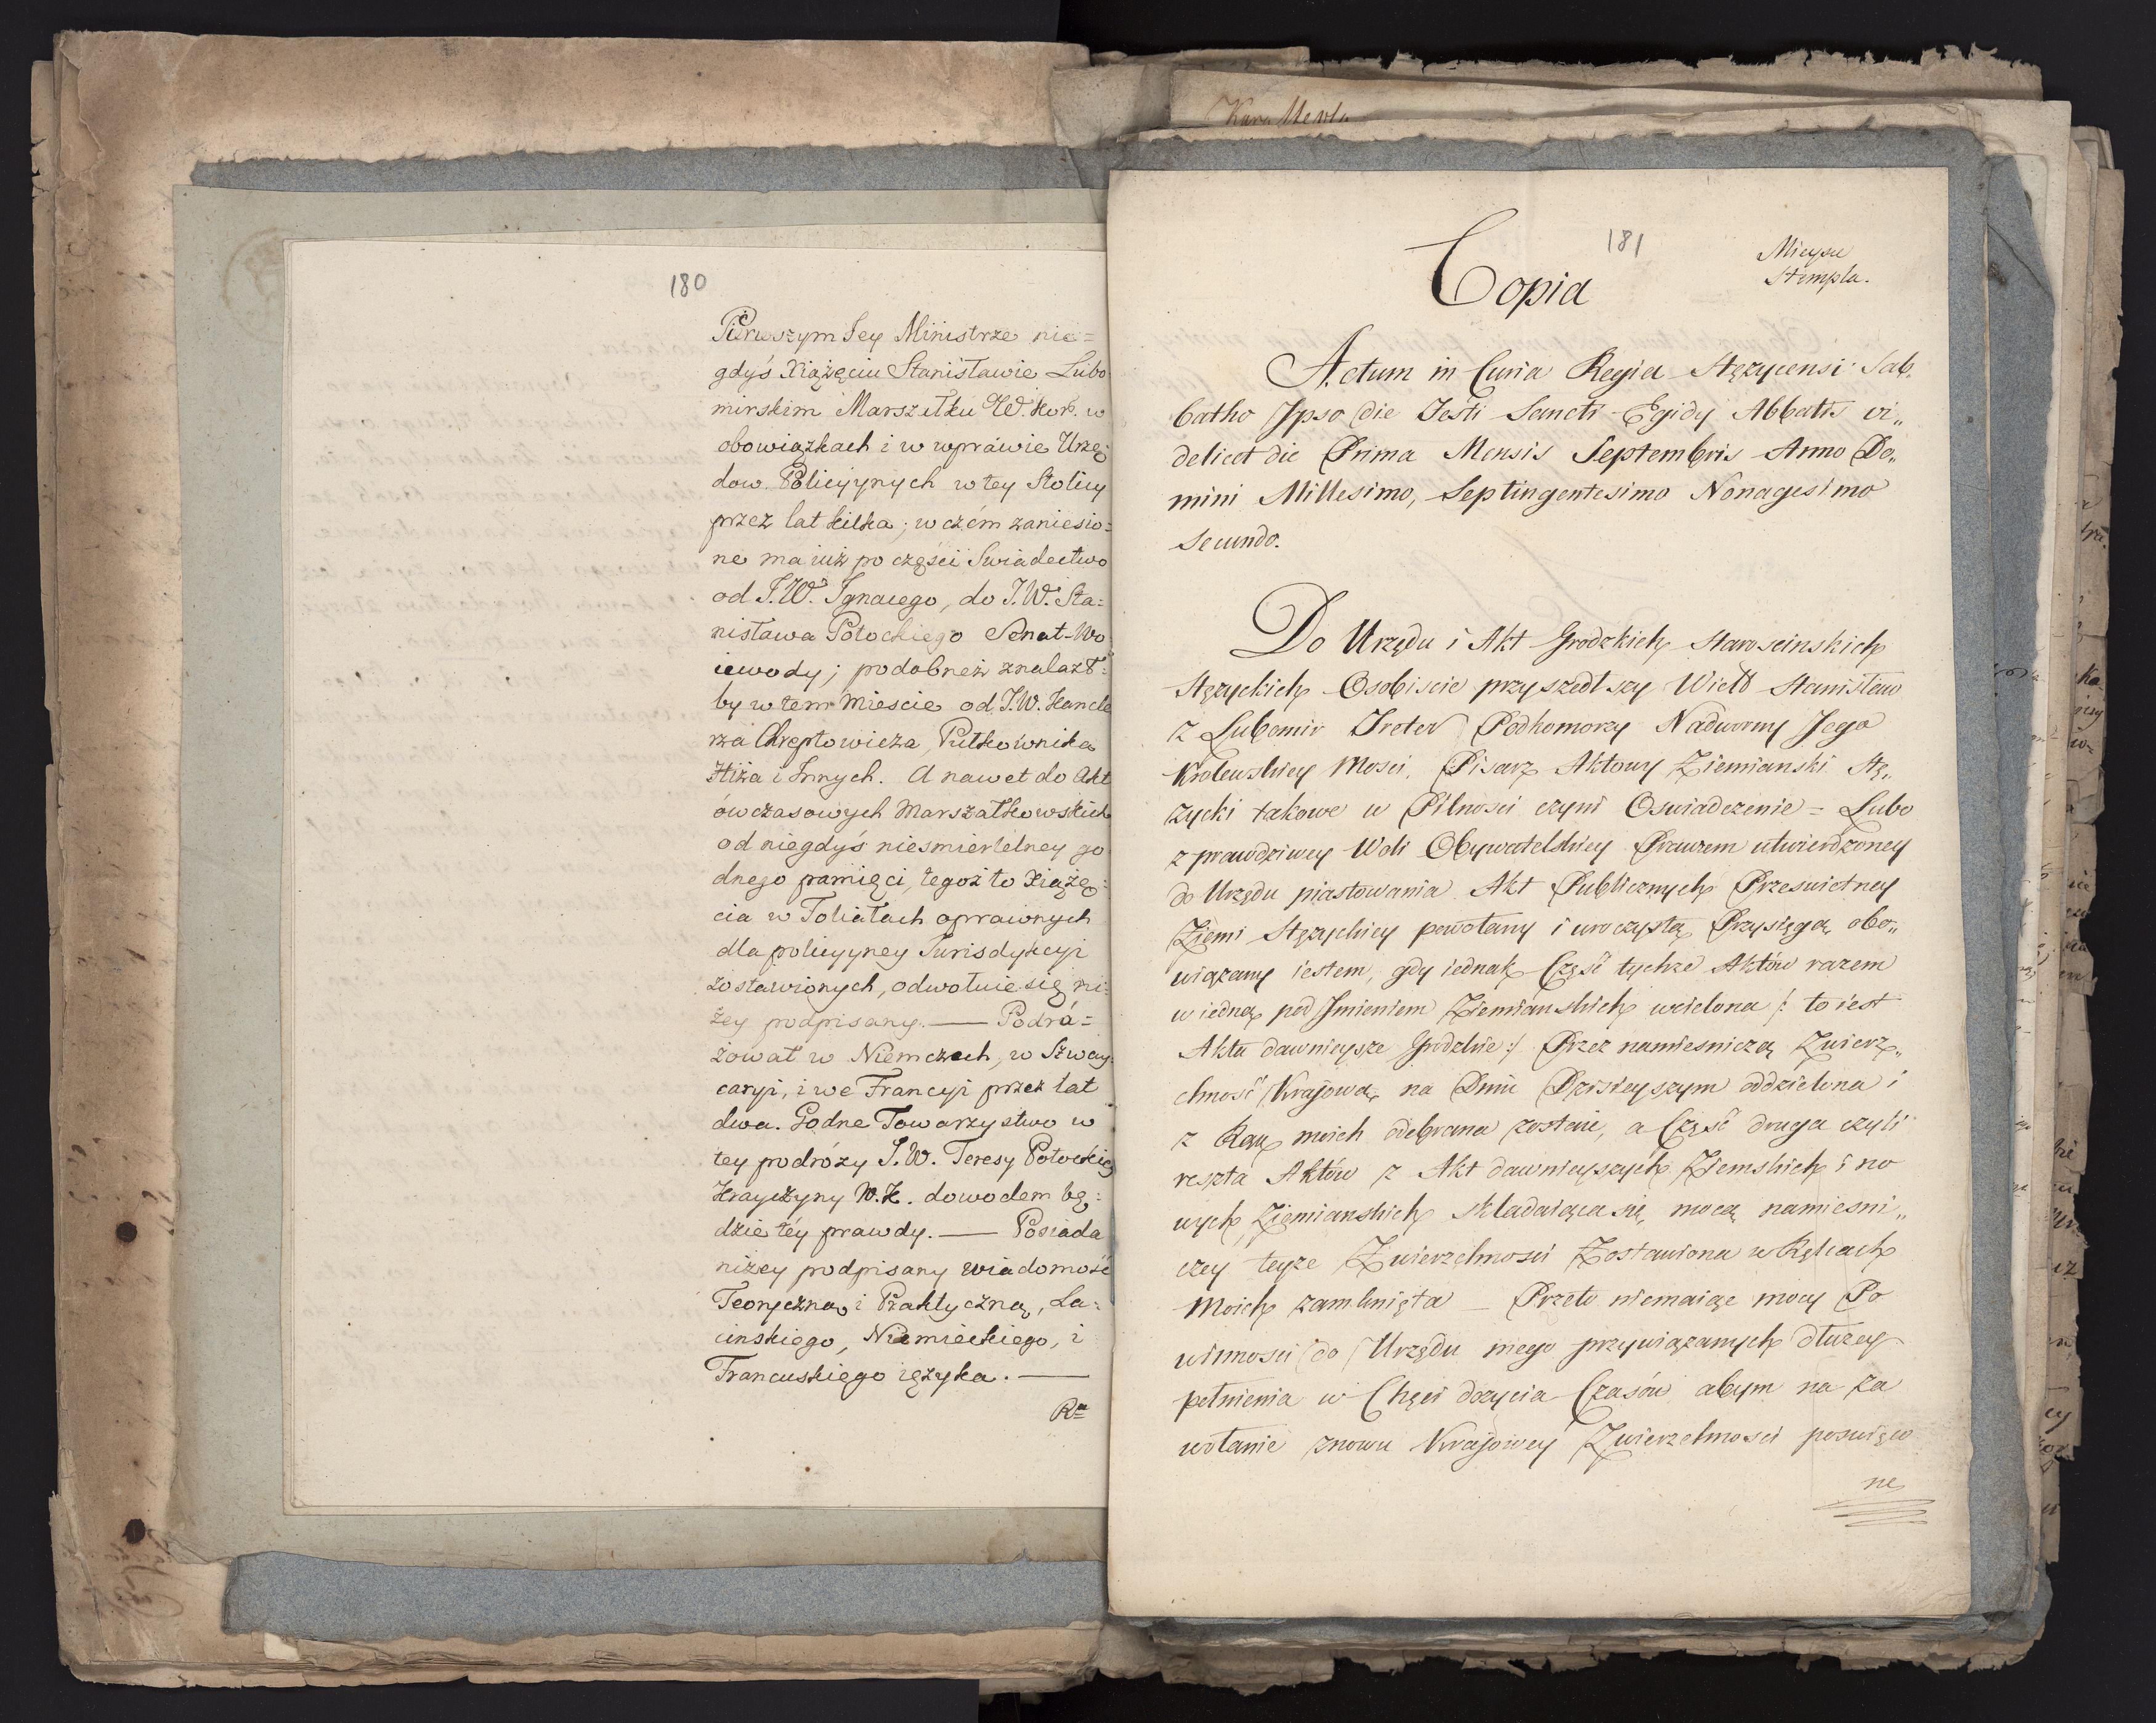 180
Pierwszym Jey Ministrze nie=
gdyś Xiążęciu Stanisławie Lubo
mirskim Marszałku W. Kor. w
obowiązkach i w wprawie Urzę:
dow Policyynych w tey Stolicy
przez lat kilka; w czém zaniesio=
ne ma iuż po części Swiadectwo
od J.W. Ignacego, do J.W. Sta=
nisława Potockiego Senat-Wo
iewody; podobneż znalazł=
by w tem mieście od J.W. Kancle
rza Chreptowicza, Pułkownika
Hiża i Innych. A nawet do Akt
ówczasowych Marszałkowskich
od niegdyś niesmiertelney go
dnego pamięci, tegoż to Xiążę=
cia w Foliałach oprawnych
dla policyyney Jurisdykcyi
zostawionych, odwołuie się ni=
żey podpisany. — Podró=
żował w Niemczech, w Szway
caryi, i we Francyi przez lat
dwa. Godne Towarzystwo w
tey podróży J.W. Teresy Potockiey
Krayczyny W.K. dowodem bę=
dzie téy prawdy. — Posiada
niżey podpisany wiadomość
Teoryczną i Praktyczną, Ła=
cinskiego, Niemieckiego, i
Francuskiego ięzyka. —
Ra
Kara
181
Mieysce
Stempla.
Copia
Actum in Curia Regia Stężycensi Sab,
batho Ipso die Festi Sancti Egidy Abbatis vi„
delicet die Prima Mensis Septembris Anno Do„
mini Millesimo, Septingentesimo Nonagesimo
Secundo.
Do Urzędu i Akt Grodzkich Staroscinskich
Stężyckich Osobiscie przyszedłszy Wielb Stanisław
z Lubomir Treter Podkomorzy Nadworny Jego
Krolewskiey Mosci, Pisarz Aktowy Ziemianski Stę„
życki takowe w Pilnosci czyni Oswiadczenie = Lubo
z prawdziwey Woli Obywatelskiey Prawem utwierdzoney
do Urzędu piastowania Akt Publicznych Przeswietney
Ziemi Stężyckiey powołany i uroczystą Przysięgą obo„
wiązany iestem, gdy iednak Część tychże Aktów razem
w iedną pod Imieniem Ziemiańskich wcielona /: to iest
Akta dawnieysze Grodzkie :/ Przez namiesniczą Zwierz„
chność Krajową, na Dniu Dzisieyszym oddzielona i
z Rąk moich odebrana zostaie, a Część druga czyli
reszta Aktów z Akt dawnieyszych Ziemskich i no
wych Ziemianskich składaiąca się, mocą namiesni„
czey teyże Zwierzchnosci Zostawiona w Rękach
Moich zamknięta — Przeto niemaiąc mocy Po
winnosci do Urzędu mego przywiązanych dłużey
pełnienia w Chęci dożycia Czasów abym na za
wołanie znowu Krajowey Zwierzchnosci poswięco
ne